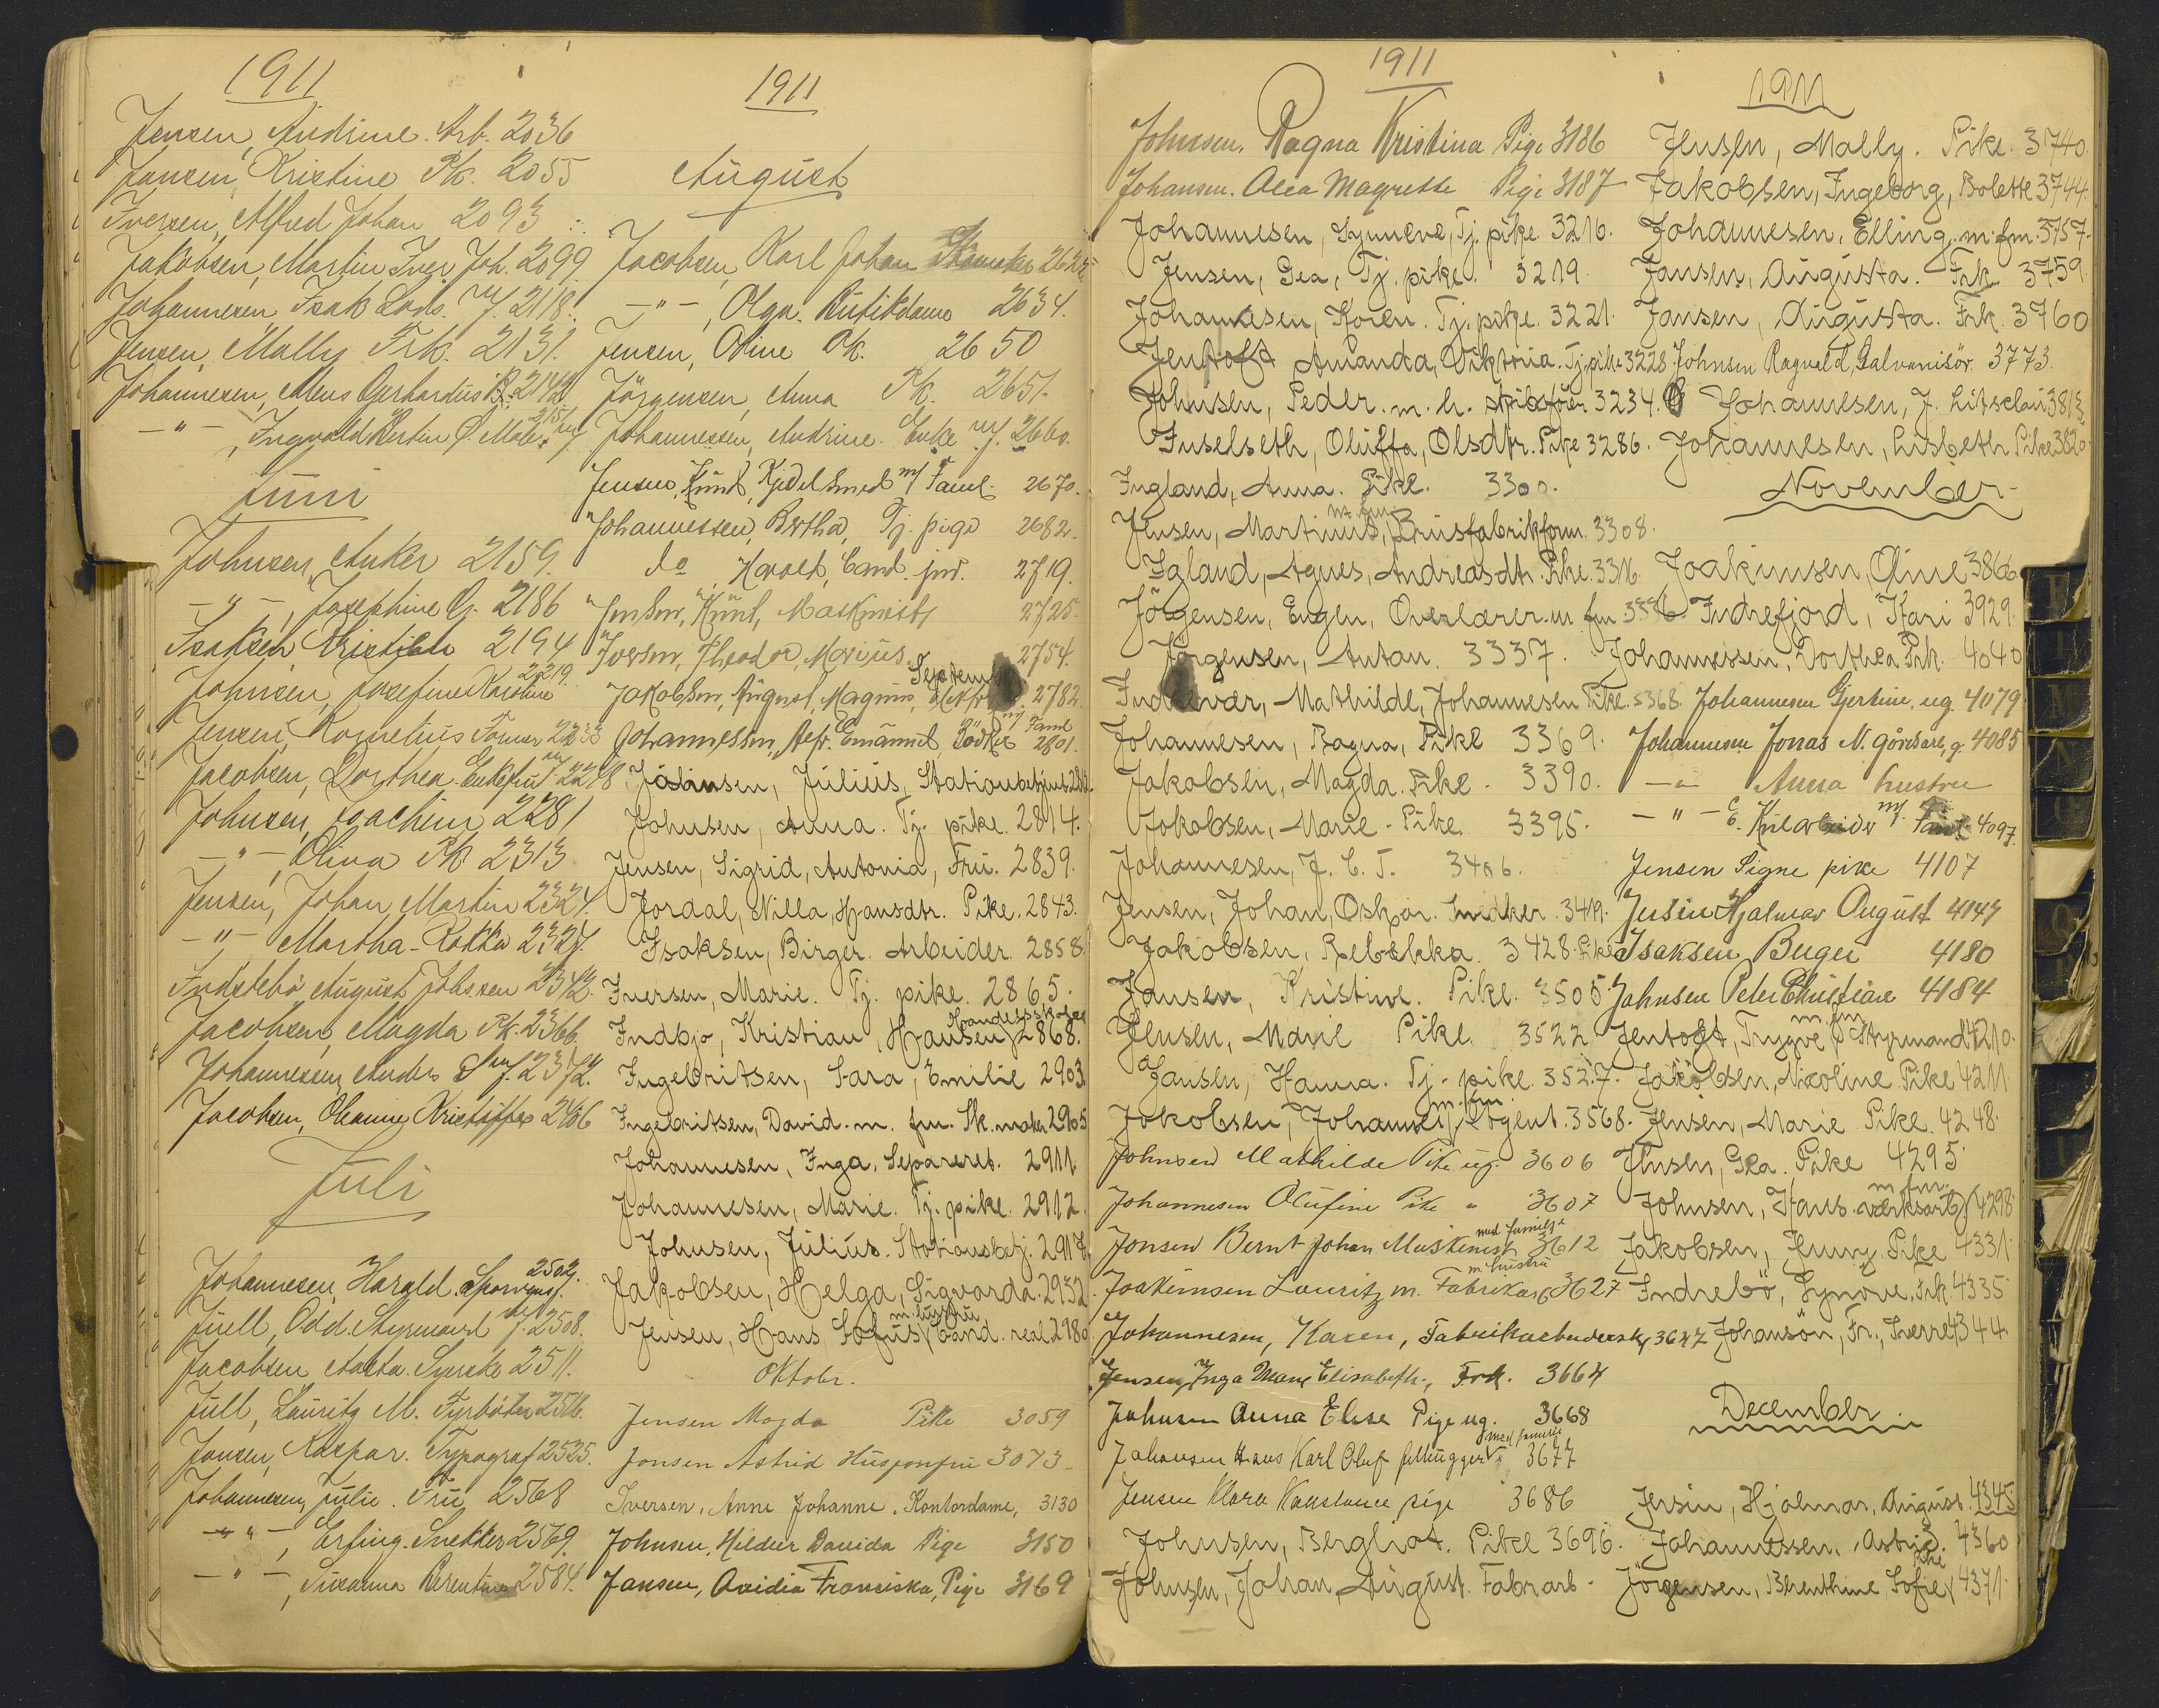 1911
Jensen, Andrine. Arb. 2036
Jansen, Kristine Pk. 2055
Iversen, Alfred Johan 2093
Jakobsen, Martin Iver Joh. 2099
Johannesen Isak Lods. m/f. 2118.
Jensen, Mally Frk. 2131.
Johannesen, Mons Gerhardus 2142
— " —, Ingvald 2151
Juni
Johnsen, Anker 2159.
— " —, Josephine G. 2186
Isaksen, Kristian 2194
Johnsen, Josefine Karoline 2219.
Jensen, Kornelius 2233
Jacobsen, Dorthea. Enkefru 2278
Johnsen, Joachim 2281
— " —, Olina Pk 2313
Jensen, Johan Martin 2324.
— " — Martha 2327.
Indrebö August Johs.sen 2342.
Jacobsen, Magda Pk. 2366.
Johannesen, Anders 2372.
Jacobsen, Oleanne 2406
Juli
Johannesen, Harald. Sporvogns. 2502.
Juell, Odd. Styrmand m/f. 2508.
Jacobsen, Syerske 2511.
Jull, Lauritz M. Fyrböter 2516.
Jansen, Kaspar. Typograf 2535.
Johannesen, Julie. Fru 2568
— " —, Erling. Snekker 2569.
— " —, Susanna 2584.
1911
August
Jacobsen, Karl Johan
— " —, Olga. Butikdame 2634.
Jensen, Oline Pk. 2650
Jörgensen, Anna Pk. 2651.
Johannessen, Andrine. Enke m/f. 2660.
Jensen, Knut, Kjedelsmed m/ Faml. 2670.
Johannessen, Bertha, Tj. pige 2682.
do, Harald, Cand. jur. 2719.
Jensen, Knut, Maskinist 2725.
Iversen, Theodor, Marius. 2754.
Septem
Jakobsen, August, Magnus, 2782.
Johannessen, Emanuel, Bödker m/ Faml 2801.
Johansen, Julius, Stationsbetjent
Johnsen, Anna. Tj. pike. 2814.
Jensen, Sigrid, Antonia, Fru. 2839.
Jordal, Nilla, Hansdtr. Pike. 2843.
Isaksen, Birger. Arbeider. 2858.
Iversen, Marie. Tj. pike. 2865.
Indbjo, Kristian, Hansen, 2868.
Ingebritsen, Sara, Emilie 2903.
Ingebritsen, David. m. fm. Sk. maker 2905
Johannesen, Inga. Separeret. 2911.
Johannesen, Marie. Tj. pike. 2912.
Johnsen, Julius. Stationsbetj. 2917.
Jakobsen, Helga, Sigvarda. 2932.
Jensen, Hans, Sofus, m. hustru Cand. real. 2980.
Oktobr.
Jensen Magda Pike 3059
Jonsen Astrid Husjomfru 3073
Iversen. Anne Johanne. Kontordame, 3130
Johnsen, Hildur Davida Pige 3150
Jansen, Ovidia Franciska, Pige 3169
1911
Johnsen. Ragna Kristina Pige 3186
Johansen. Alea Magrette Pige 3187
Johannesen, Synneve, Tj. pike 3216.
Jensen, Gea, Tj. pike. 3219
Johannesen, Koren. Tj. pike. 3221.
Jentoft Amanda, Viktoria. Tj. pike 3228
Johnsen, Peder. m. h. 3234.
Inselseth, Oluffa, Olsdtr. Pike 3286.
Ingland, Anna. Pike. 3300.
Jensen, Martinus, m. fm. Brusfabrikform. 3308.
Igland, Agnes, Andreasdtr. Pike. 3316.
Jörgensen, Eugen, Overlærer. m fm 3336.
Jörgensen, Anton. 3337.
Mathilde, Johannesen Pike. 3368.
Johannesen, Ragna, Pike 3369.
Jakobsen, Magda. Pike. 3390.
Jokobsen, Marie. Pike. 3395.
Johannesen, J. C. T. 3406.
Jensen, Johan, Oskar. Snedker. 3419.
Jakobsen, Rebekka. 3428. Pike
Jansen, Kristine. Pike. 3505
Jensen, Marie Pike. 3522
Jansen, Hanna. Tj. pike. 3527.
Jokobsen, Johannes, m. fm. Logent. 3568.
Johnsen Mathilde Pike ug. 3606
Johannesen Olufine Pike " 3607
Jonsen Bernt Johan Maskinist med familje 3612
Joakimsen Lauritz m. hustru Fabrikarb 3627
Johannesen, Karen, Fabrikarbeiderske, 3647
Jensen, Inga Marie Elisabeth, Frk. 3664
Johnsen Anna Elise Pige ug. 3668
Johansen Hans Karl Oluf med familie 3677
Jensen Klara Konstance pige 3686
Johnsen, Bergliot. Pike 3696.
Johnsen, Johan August. Fabrarb.
1911
Jensen, Mally. Pike. 3740.
Jakobsen, Ingeborg, Bolette 3744.
Johannesen, Elling. m. fm. 3757.
Jansen, Augusta. Frk. 3759.
Jansen, Augusta. Frk. 3760
Johnsen Ragvald, Galvanisör. 3773.
Johannesen, J. 3813
Johannesen, Lisbeth Pike 3820
November
Joakimsen, Oline 3866
Indrefjord, Kari 3929.
Johannessen, Dorthea Pk. 4040
Johannesen Gjertine. ug. 4079
Johannesen Jonas N. 4085
— " — Anna hustru
— " — E. m/ Faml. 4097.
Jensen Signe pike 4107
Jersin Hjalmar August 4143
Isaksen Birger 4180
Johnsen Peter Christian 4184
Jentoft, Trygve m. fm. Styrmand 4210.
Jakobsen, Nicoline Pike 4211.
Jensen, Marie Pike. 4248.
Jensen, Gea. Pike 4295
Johnsen, Hans. m fm. værksarb 4298
Jakobsen, Jenny. Pike 4331.
Indrebö, Synöve, Frk. 4335
Johanson, Fr., Sverre, 4344
December
Jersin, Hjalmar, August. 4345
Johannessen, Astrid. 4360
Jörgensen, Berenthine Sofie, Pike 4371.